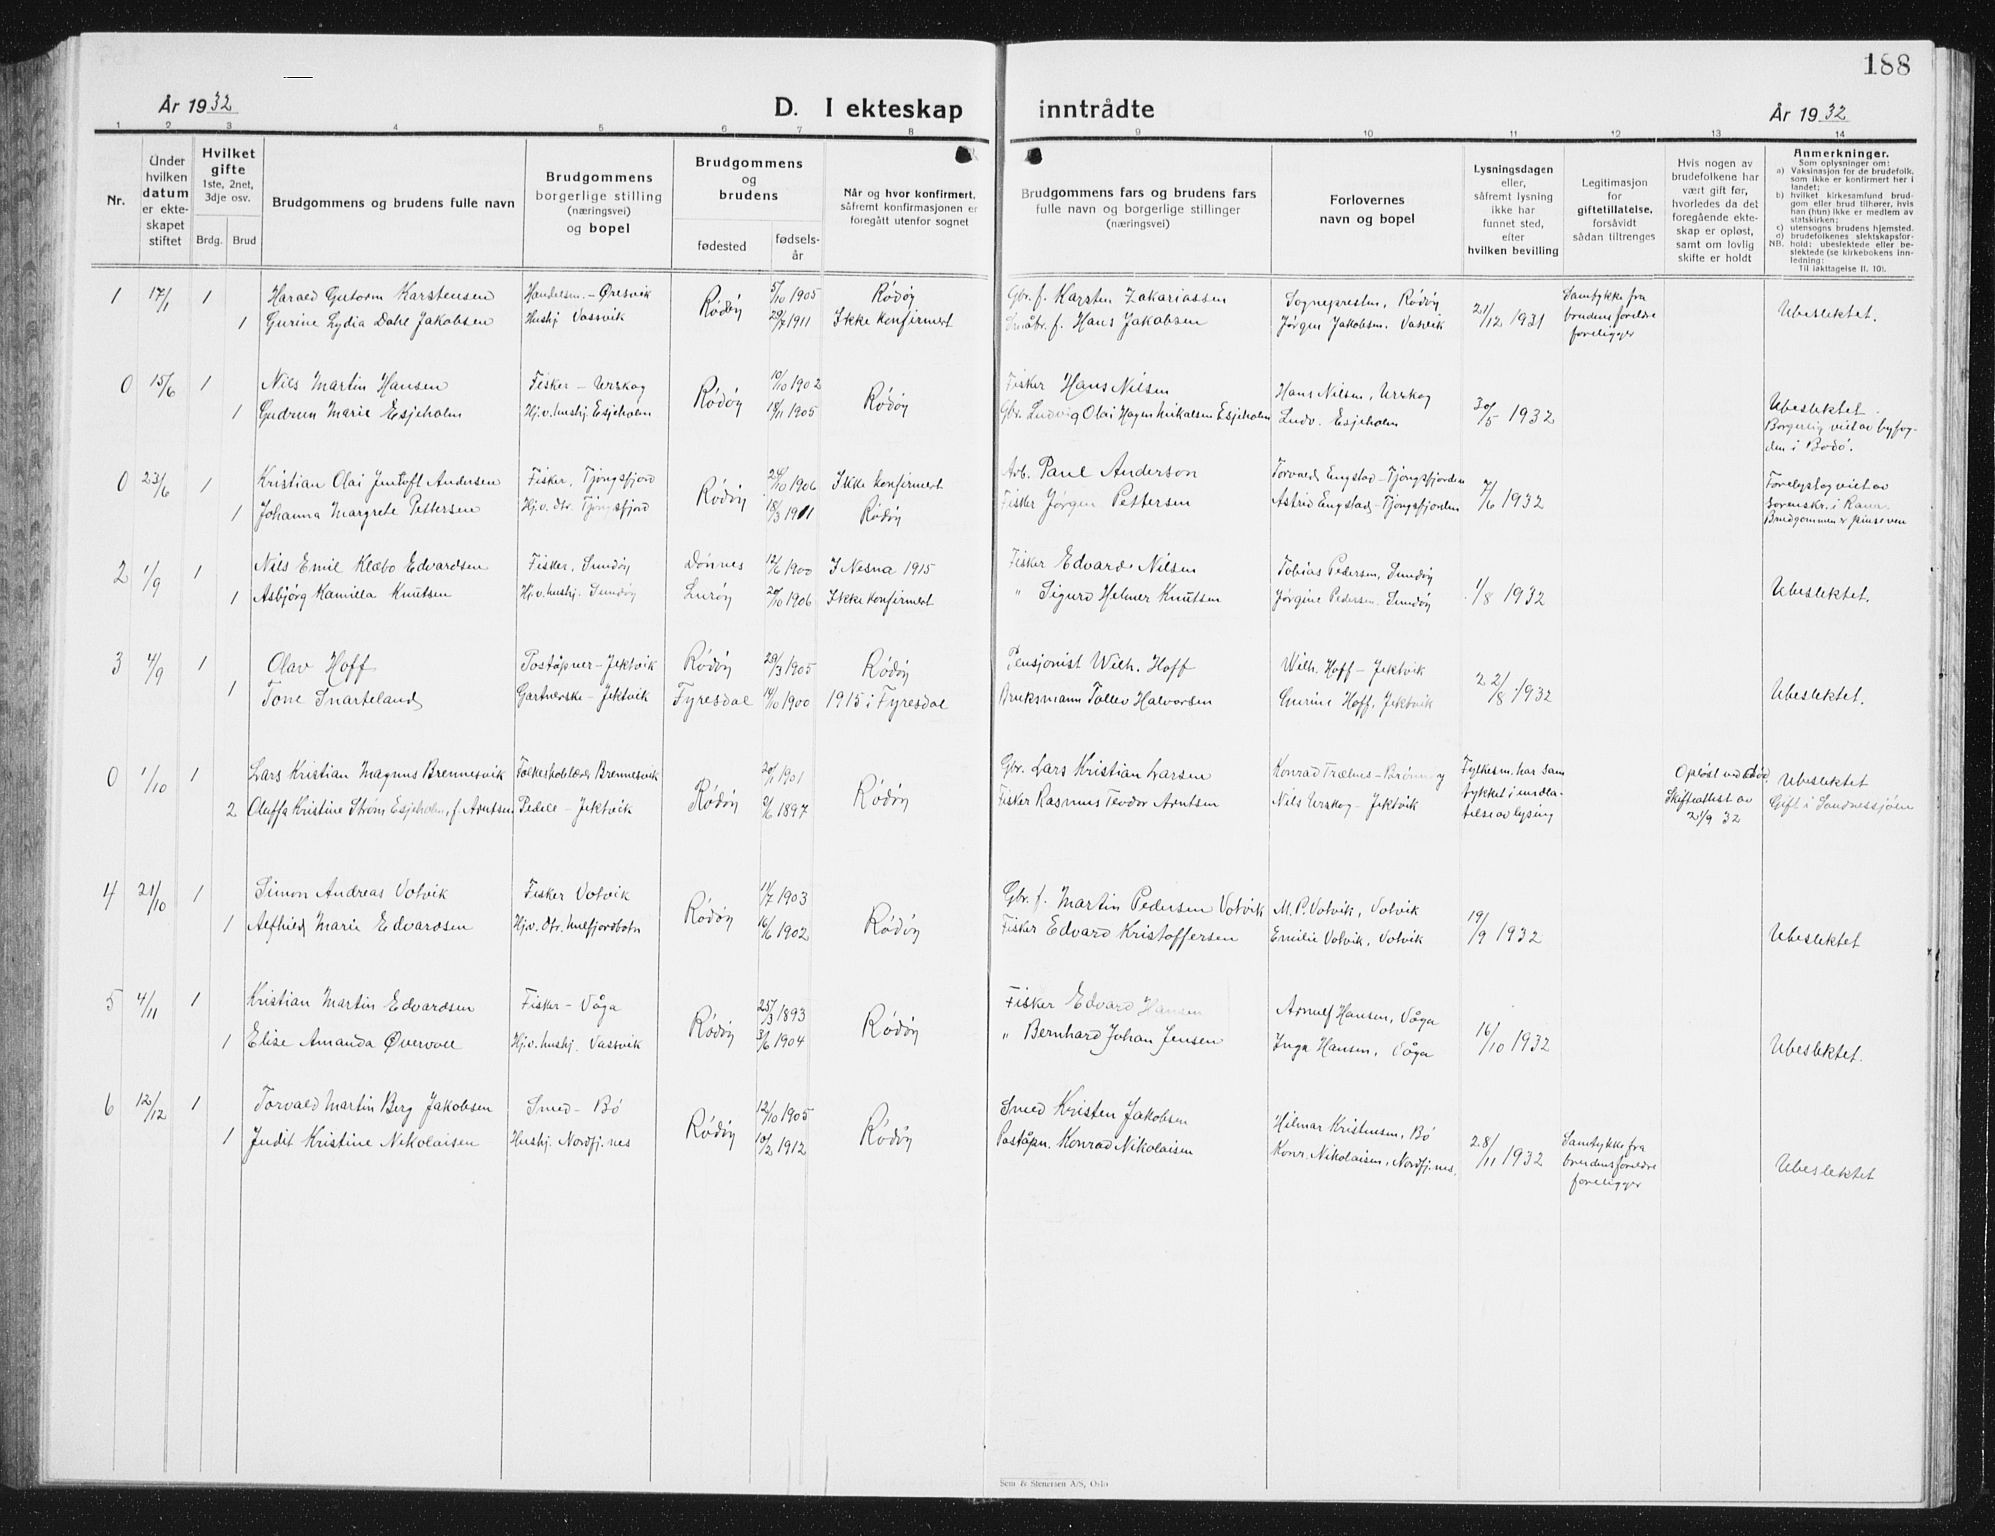 188
År 1932
D. I ekteskap inntrådte
År 1932
1 2 3 4 5 6 7 8 9 10 11 12 13 14
Nr.
Under hvilken datum er ekteskapet stiftet
Hvilket gifte
1ste, 2net, 3dje osv.
Brdg. Brud
Brudgommens og brudens fulle navn
Brudgommens borgerlige stilling (næringsvei) og bopel
Brudgommens og brudens
fødested
fødselsår
Når og hvor konfirmert, såfremt konfirmasjonen er foregått utenfor sognet
Brudgommens fars og brudens fars fulle navn og borgerlige stillinger (næringsvei)
Forlovernes navn og bopel
Lysningsdagen eller, såfremt lysning ikke har funnet sted, efter hvilken bevilling
Legitimasjon for giftetillatelse, forsåvidt sådan tiltrenges
Hvis nogen av brudefolkene har vært gift før, hvorledes da det foregående ekteskap er opløst, samt om lovlig skifte er holdt
Anmerkninger.
Som oplysninger om:
a) Vaksinasjon for de brudefolk, som ikke er konfirmert her i landet;
b) hvilket kirkesamfund brudgom eller brud tilhører, hvis han (hun) ikke er medlem av statskirken;
c) utensogns brudens hjemsted.
d) brudefolkenes slektskapsforhold: ubeslektede eller beslektede (se kirkebokens innledning:
NB. Til iakttagelse II. 10).
1 17/1 1 Harald Gutorm Karstensen Handelsm. - Øresvik Rødøy 5/10 1905 Rødøy Gbr. f. Karsten Zakariassen Sognepresten, Rødøy 21/12 1931 Samtykke fra brudens foreldre foreligger Ubeslektet.
1 Gurine Lydia Dahl Jakobsen Hushj. Vassvik 29/7 1911 Ikke konfirmert Småbr. f. Hans Jakobsen Jørgen Jakobsen, Vasvik
0 15/6 1 Nils Martin Hansen Fisker - Urskog Rødøy 10/10 1902 Rødøy Fisker Hans Nilsen Hans Nilsen, Urskog 30/5 1932 Ubeslektet.
1 Gudrun Marie Esjeholm Hj.v. hushj. Esjeholm 18/11 1905 Gbr. Ludvig Olai Hagen Mikalsen Esjeholm Ludv. Esjeholm Borgerlig viet av byfogden i Bodø.
0 23/6 1 Kristian Olai Jentoft Andersen Fisker, Tjongsfjord Rødøy 1906 Ikke konfirmert Arb. Paul Anderson Torvald Engstad - Tjongsfjorden 7/6 1932 Foreløstog viet av Sorenskr. i Rana.
1 Johanna Margrete Pettersen Hj.v. dtr. Tjongsfjord 18/3 1911 Rødøy Fisker Jørgen Pettersen Astrid Engstad - Tjongsfjorden Brudgommen er pinseven
2 1/9 1 Nils Emil Klæbo Edvardsen Fisker, Sundøy Dønnes 12/6 1900 I Nesna 1915 Fisker Edvard Nilsen Tobias Pedersen, Sundøy 1/8 1932 Ubeslektet.
1 Asbjørg Kamilla Knutsen Hj.v. hushj. Sundøy Lurøy 20/10 1906 Ikke konfirmert " Sigurd Helmer Knutsen Jørgine Pedersen. Sundøy
3 4/9 1 Olav Hoff Poståpner - Jektvik Rødøy 29/3 1905 Rødøy Pensjonist Wilh. Hoff Wilh. Hoff - Jektvik 22/8 1932 Ubeslektet.
1 Tone Snarteland Gartnerske - Jektvik Fyresdal 14/10 1900 1915 i Fyresdal Bruksmann Tallev Halvorsen Gurine Hoff, Jektvik
0 1/10 1 Lars Kristian Magnus Brennesvik Folkeskolelærer Brennesvik Rødøy 20/1 1901 Rødøy Gbr. Lars Kristian Larsen Konrad Trælnes - Brønnøy Fylkesm. har samtykket i undlatelse av lysing Opløst ved død. Skifteattest av 21/9 32 Ubeslektet
2 Oluffa Kristine Strøm Esjeholm, f. Arntsen Pedell - Jektvik 9/6 1897 Fisker Rasmus Teodor Arntsen Nils Urskog - Jektvik Gift i Sandnessjøen
4 21/10 1 Simon Andreas Votvik Fisker Votvik Rødøy 11/7 1903 Rødøy Gbr. f. Martin Pedersen Votvik M. P. Votvik, Votvik 19/9 1932 Ubeslektet
1 Alfhild Marie Edvardsen Hj.v. dtr. Melfjordbotn 16/6 1902 Fisker Edvard Kristoffersen Emilie Votvik, Votvik
5 4/11 1 Kristian Martin Edvardsen Fisker - Våga Rødøy 25/3 1893 Rødøy Fisker Edvard Hansen Arnulf Hansen, Våga 16/10 1932 Ubeslektet.
1 Elise Amanda Øvervoll Hj.v. hushj. Vassvik 3/6 1904 " Bernhard Johan Jensen Inga Hansen, Våga
6 12/12 1 Torvald Martin Berg Jakobsen Smed - Bø Rødøy 12/10 1905 Rødøy Smed Kristen Jakobsen Hilmar Kristensen, Bø 28/11 1932 Samtykke fra brudens foreldre foreligger Ubeslektet
1 Judit Kristine Nikolaisen Hushj. Nordfj.nes 10/2 1912 Poståpn. Konrad Nikolaisen Konr. Nikolaisen, Nordfj.nes,
Sem & Stenersen A/S, Oslo